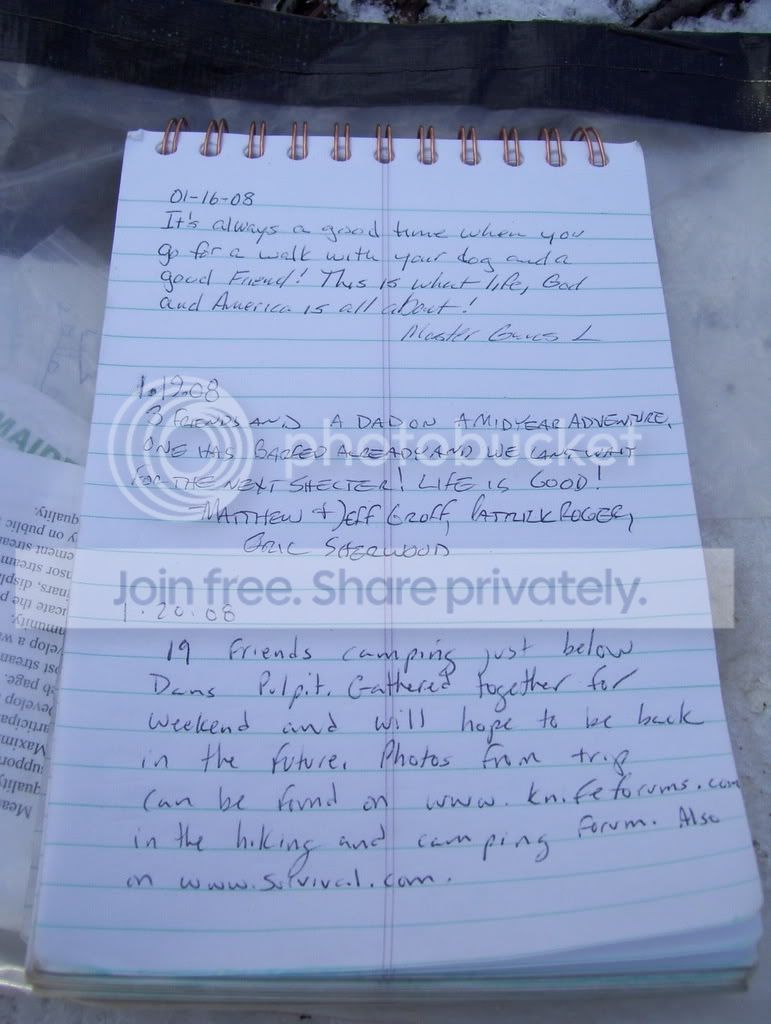 01-16-08
It's always a good time when you
go for a walk with your dog and a
good Friend! This is what life, God
and America is all about!
Master L
1.19.08
3 FRIENDS AND A DAD ON A MIDYEAR ADVENTURE.
ONE HAS BARFED ALREADY AND WE CANT WAIT
FOR THE NEXT SHELTER! LIFE IS GOOD!
-MATTHEW & JEFF GROFF, PATRICK ROGER,
ERIC SHERWOOD
photobucket
Join free. Share privately.
1.20.08
19 Friends camping just below
Dans Pulpit. Gathered together for
weekend and will hope to be back
in the future. Photos from trip
can be found on www.knifeforums.com
in the hiking and camping forum. Also
on www.survival.com.
MAID
quality.
y on public
ement strean
nsor stream
inars, displ
ucate the p
mmunity.
velop a w
ost strean
b page.
Develop
articipa
Maximi
suppor
quality
Mea